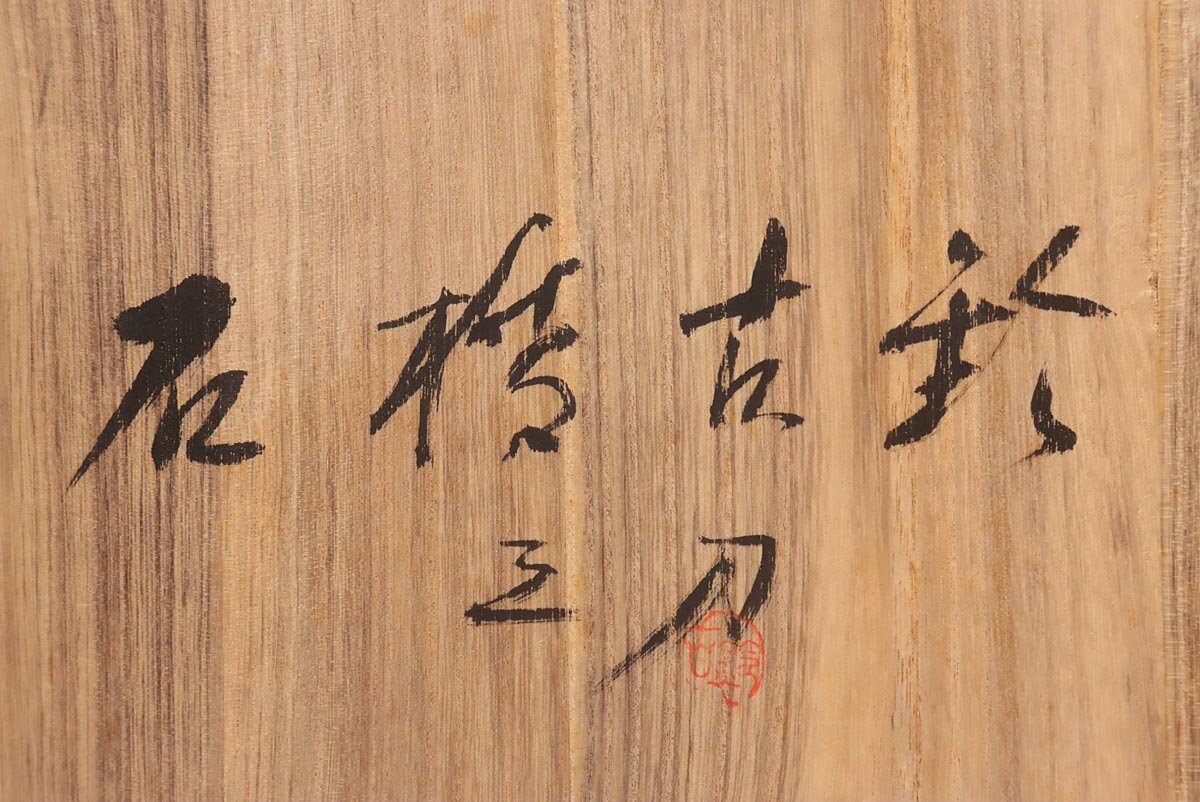 石橋古鈴
三刀